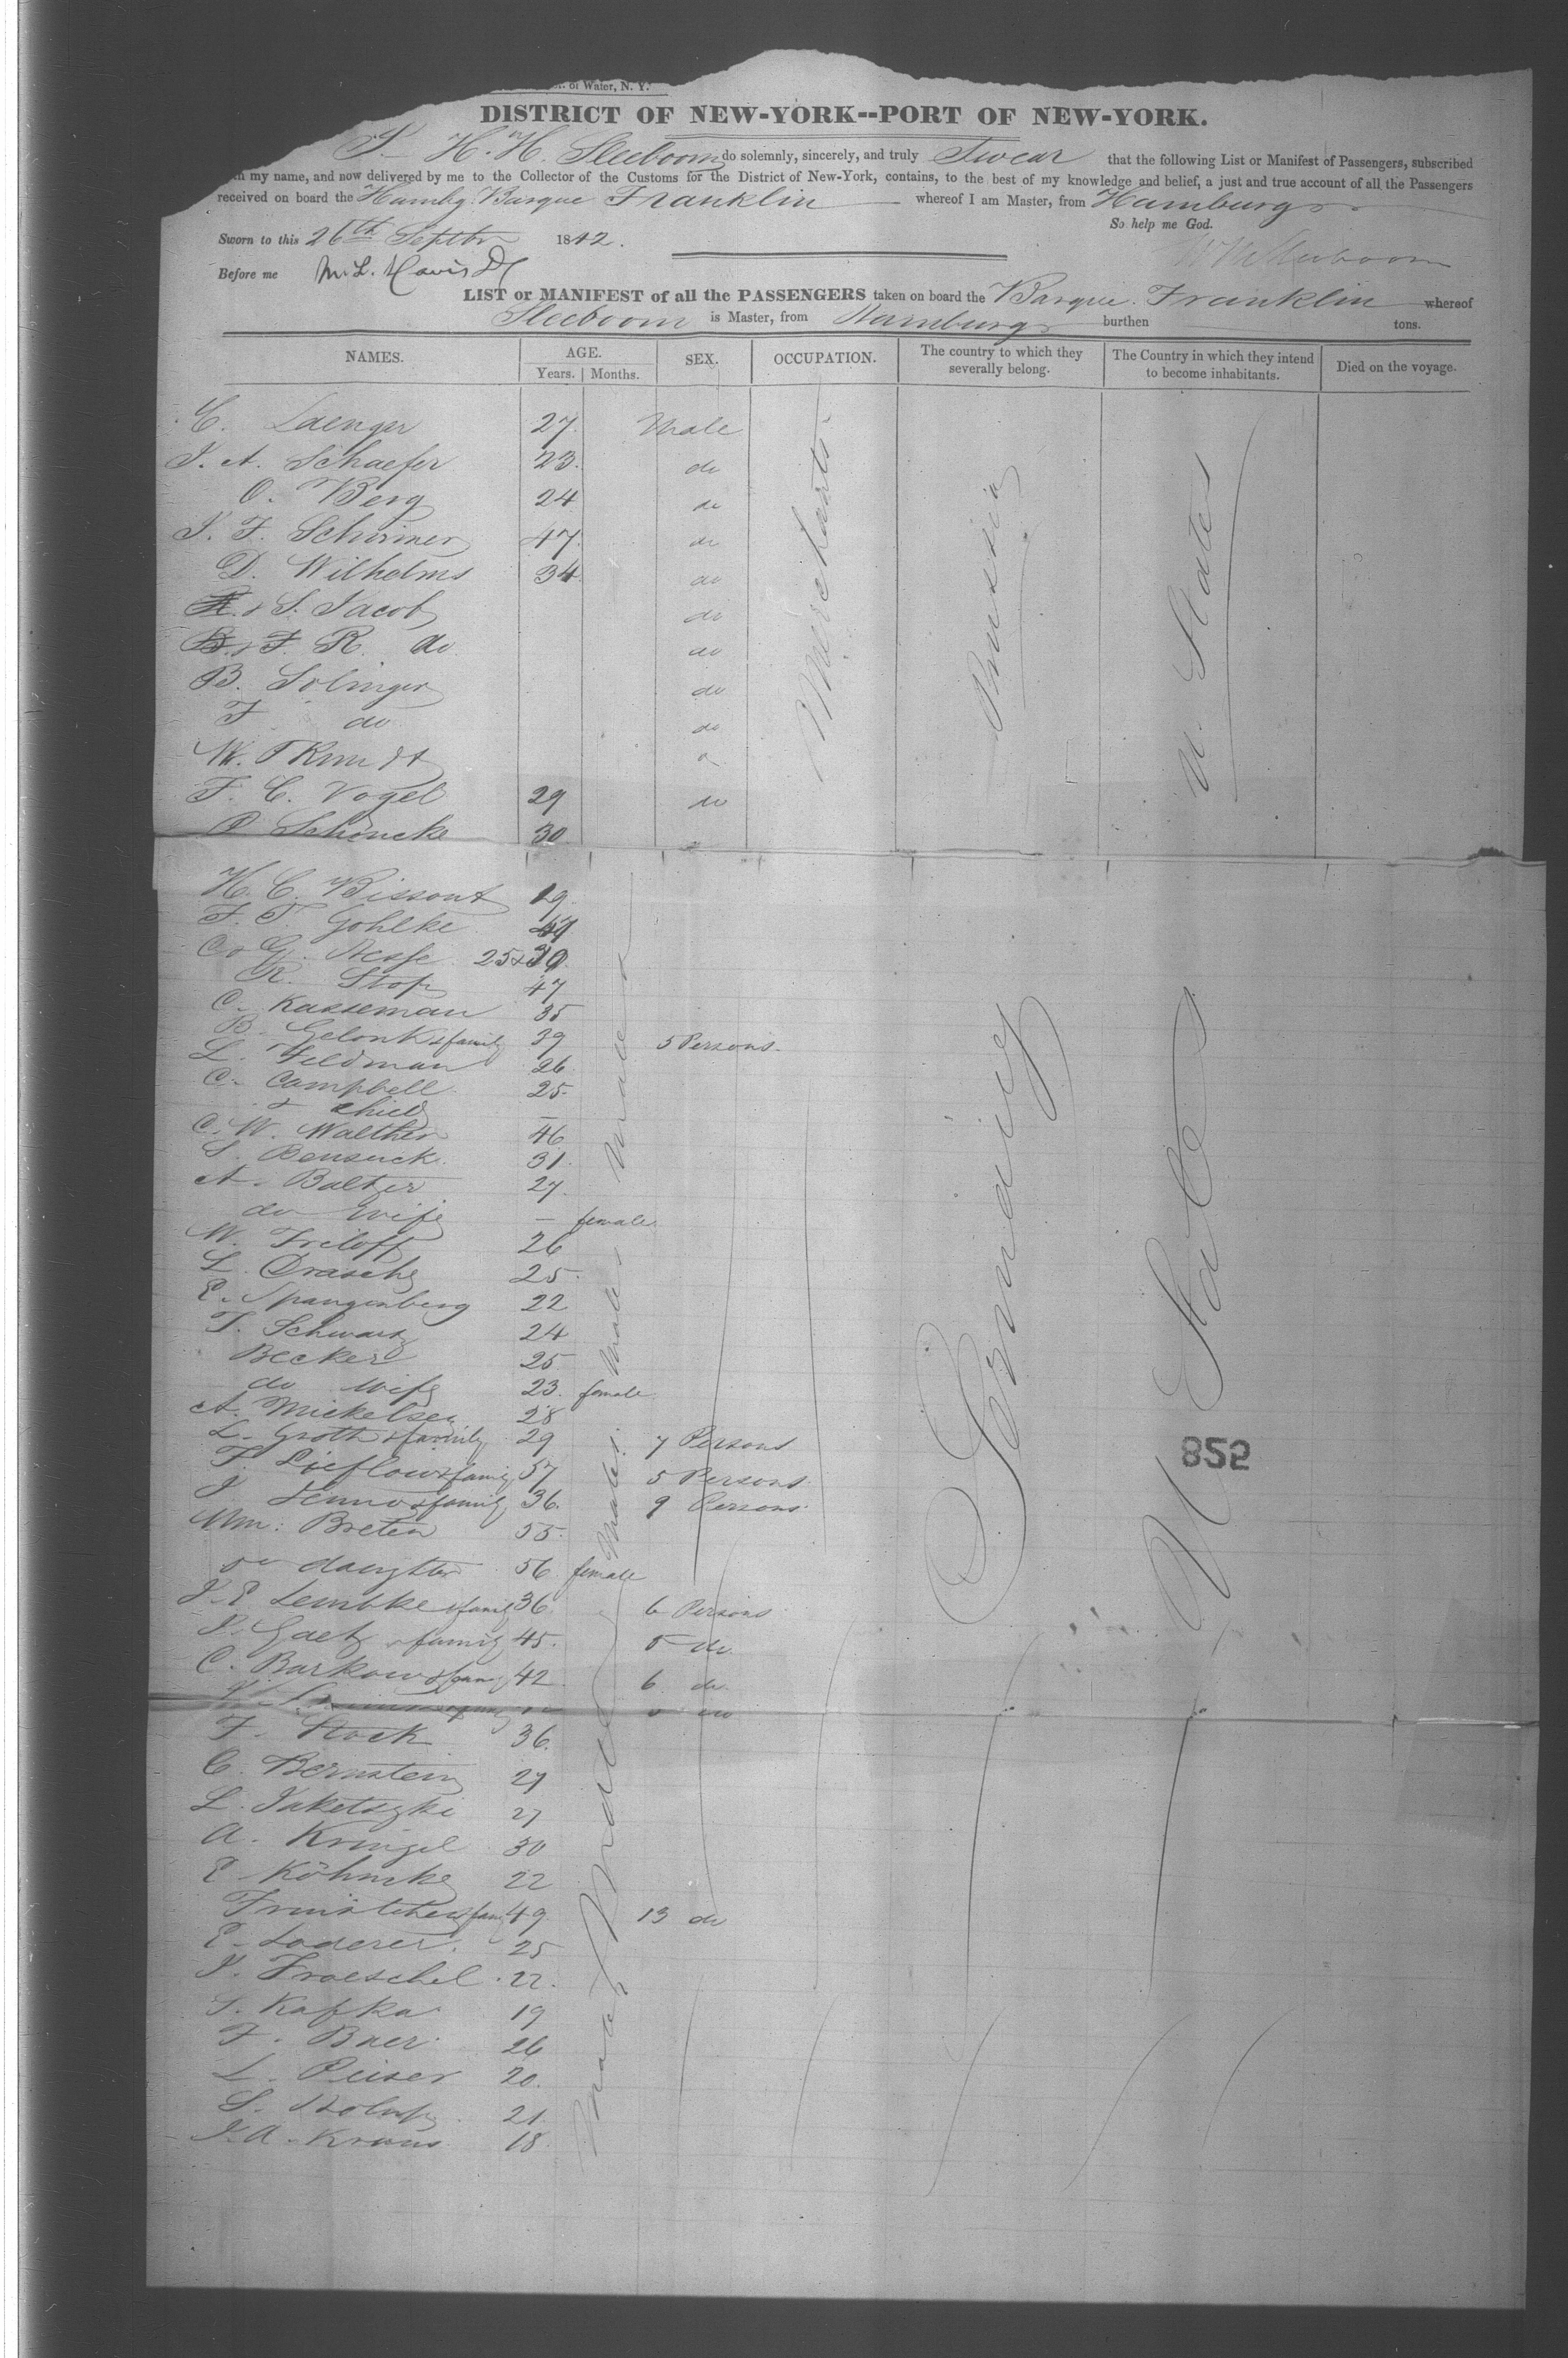 of Water, N. Y.
DISTRICT OF NEW-YORK--PORT OF NEW-YORK.
I H. H. Sleeboom do solemnly, sincerely, and truly Swear that the following List or Manifest of Passengers, subscribed
my name, and now delivered by me to the Collector of the Customs for the District of New-York, contains, to the best of my knowledge and belief, a just and true account of all the Passengers
received on board the Hambg Barque Franklin whereof I am Master, from Hamburg
So help me God.
Sworn to this 26th Septbr 1842.
Before me M. L. Davis
LIST or MANIFEST of all the PASSENGERS taken on board the Barque Franklin whereof
Sleeboom is Master, from Hamburg burthen tons.
NAMES. AGE. SEX. OCCUPATION. The country to which they severally belong. The Country in which they intend to become inhabitants. Died on the voyage.
Years. Months.
C. Laenger 27 Male
J. A. Schaefer 23. do
O. Berg 24 do
J. F. Schirmer 47 do
D. Wilhelms 34 do
& S. Jacob do
& F. R. do do
B. Solinger do
F do do
W. do
F. C. Vogel 29 do
Schoncke 30
Merchants
Prussia
U. States
H. C. Bissout 19.
F. T. Gohlke 47
C & G. Hesse 25 & 30
R. Stop 47
C. Kasseman 35
B. Gelonk & family 39 5 Persons.
L. Feldman 26
C. Campbell 25.
& child –
C. W. Walther 46
S. Bensuck. 31.
A. Baltzer 27.
do wife – female
W. Friloff 26
L. Drasche 25.
E. Spangenberg 22
T. Schwartz 24
Becker 25
do wife 23. female
A. Mickelsen 28
L. Groth & family 29 7 Persons
F. Lieflow & family 57 5 Persons.
J & family 36. 9 Persons.
Wm: Breten 55.
daughter 56 female
J. E. Lembke & family 36 6 Persons
J. Gaetz & family 45. 5 do
C. Barkow & fam 42 6 do
do
F. Stock 36.
C. Bernstein 27
L. Jaketszki 27
A. Kringel 30
E. Köhncke 22
& fam 49 13 do
E. Loderer. 25
J. Froeschel 22.
S. Kafka 19
F. Baer 26
L. Peiser 20.
S. 21
J. A. Kraus 18.
Males
Males
Males
Germany
U States
852